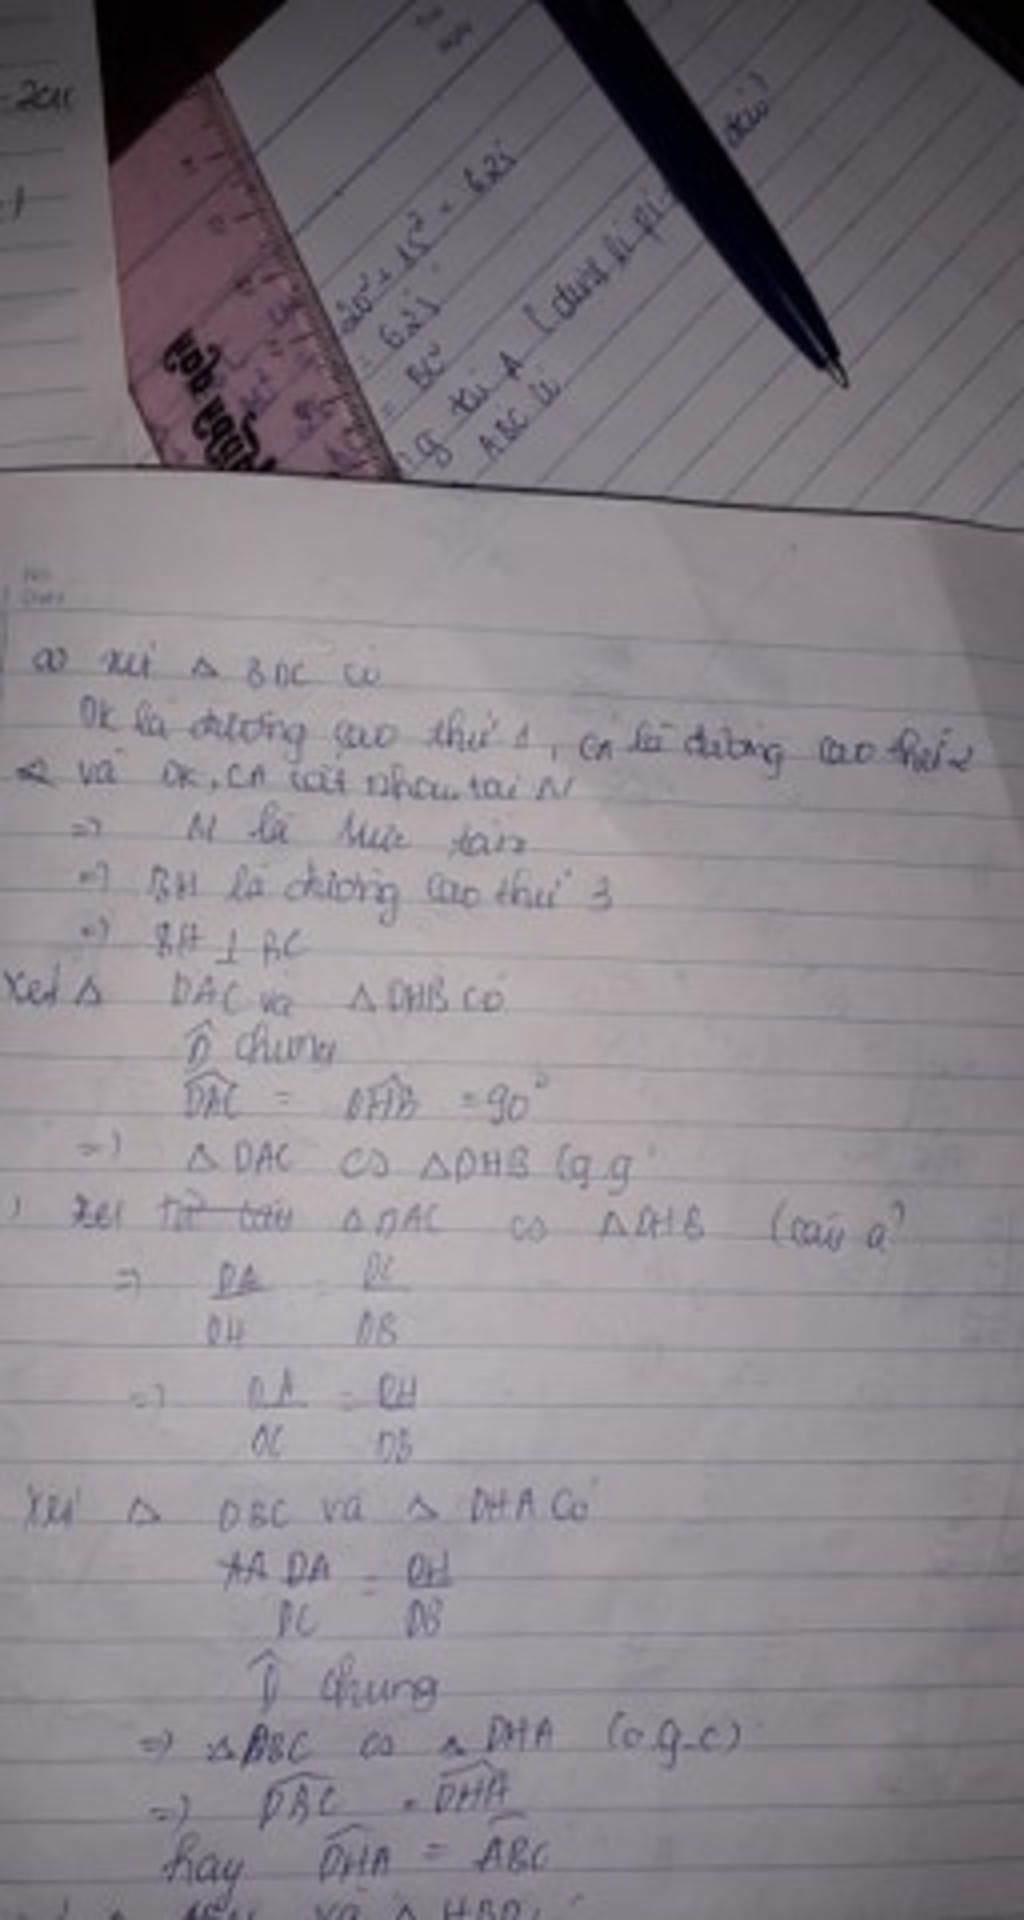 20² + 15² = 625
= 625
= BC²
g tại A (định lí
ABC là
a) xét △ BDC có
DK là đường cao thứ 1, CA là đường cao thứ 2
và DK, CA cắt nhau tại N
=> N là trực tâm
=> BH là đường cao thứ 3
=> BH ⊥ BC
Xét △ DAC và △ DHB có
D̂ chung
DAC = DHB = 90°
=> △ DAC ∽ △DHB (g.g
△ DAC ∽ △DHB (câu a)
=> DA = DC
DH DB
=> DA = DH
DC DB
Xét △ DBC và △ DHA có
DA = DH
DC DB
D̂ chung
=> △ DBC ∽ △ DHA (c.g-c)
=> DBC = DHA
hay DHA = ABC
và △ HBD